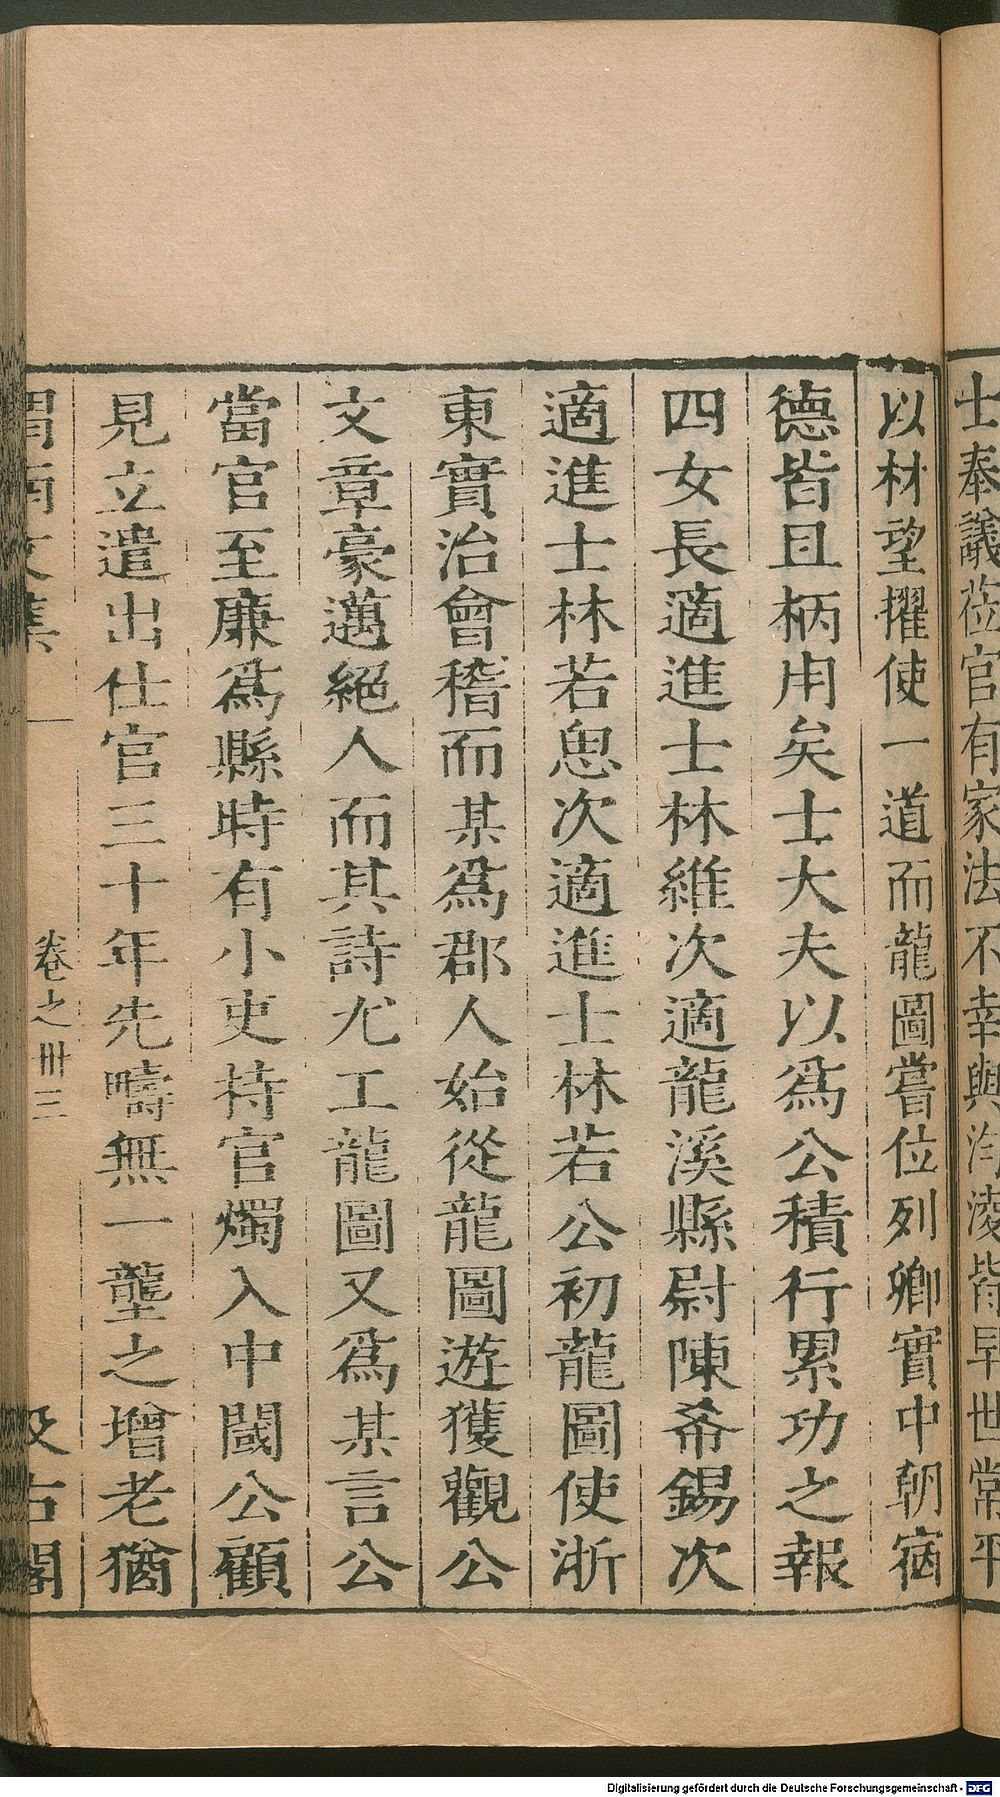 士奉議莅官有家法不幸與洵淩皆早世常平
以材望擢使一道而龍圖嘗位列卿實中朝宿
德皆且柄用矣士大夫以爲公積行累功之報
四女長適進士林維次適龍溪縣尉陳希錫次
適進士林若思次適進士林若公初龍圖使浙
東實治會稽而某爲郡人始從龍圖遊獲觀公
文章豪邁絕人而其詩尤工龍圖又爲某言公
當官至廉爲縣時有小吏持官燭入中閫公顧
見立遣出仕官三十年先疇無一壟之增老猶
渭南文集 卷之卅三 汲古閣
Digitalisierung gefördert durch die Deutsche Forschungsgemeinschaft - DFG